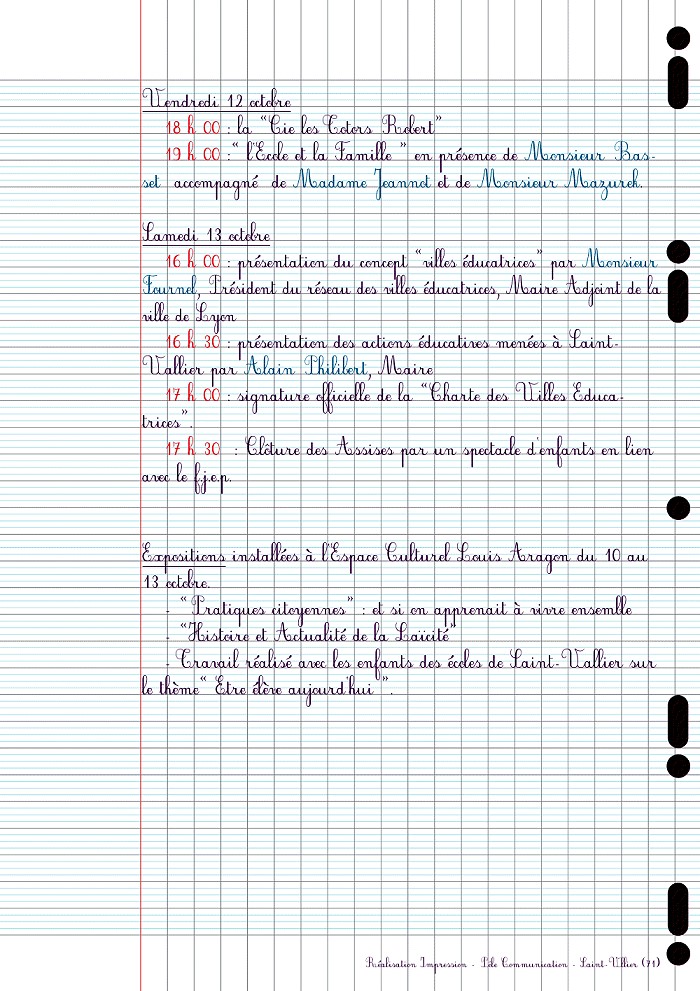 Vendredi 12 octobre
18 h 00 : la "Cie les Totors Robert"
19 h 00 : " l'Ecole et la Famille " en présence de Monsieur Bas-
set accompagné de Madame Jeannot et de Monsieur Mazurek.
Samedi 13 octobre
16 h 00 : présentation du concept "villes éducatrices" par Monsieur
Fournel, Président du réseau des villes éducatrices, Maire Adjoint de la
ville de Lyon
16 h 30 : présentation des actions éducatives menées à Saint-
Vallier par Alain Philibert, Maire
17 h 00 : signature officielle de la "Charte des Villes Educa-
trices".
17 h 30 : Clôture des Assises par un spectacle d'enfants en lien
avec le f.j.e.p.
Expositions installées à l'Espace Culturel Louis Aragon du 10 au
13 octobre.
- " Pratiques citoyennes" : et si on apprenait à vivre ensemble
- "Histoire et Actualité de la Laïcité"
- Travail réalisé avec les enfants des écoles de Saint-Vallier sur
le thème " Etre élève aujourd'hui ".
Réalisation Impression - Pôle Communication - Saint-Vllier (71)